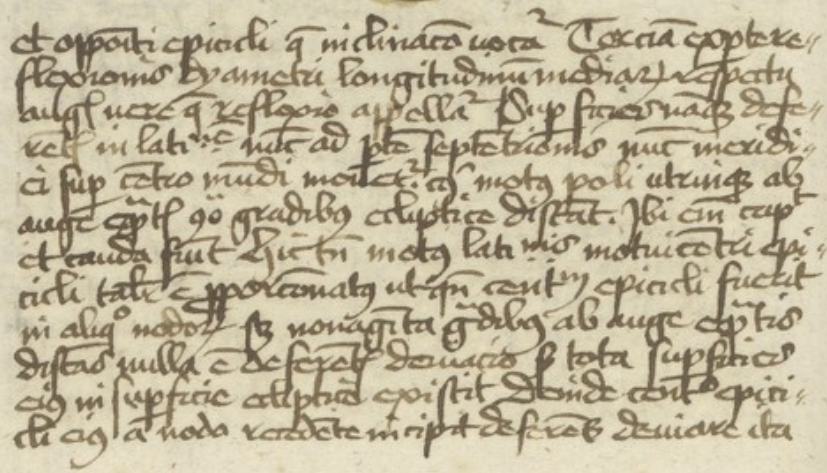 et opp̄oiti epicicli q̄ inclinacō vocat᷑ Terciā ex p̱te re-
flexionis dyametri longitudinū mediarꝝ respectu
augꝭ vere q̄ reflexio appellat᷑ Suꝑficies nāqꝫ defe-
rētꝭ in latine nūc ad p̱tē septētrionis nūc meridi-
ei sup̱ cētro mūdi mouet᷑ cꝰ motꝰ poli utrinqꝫ ab
auge eꝗ̄tꝭ 90 gradibꝫ ecliptice distāt. Ibi em̄ caput
et cauda fiūt Hic tn̄ motꝰ latinis motui cētri epi-
cicli talr̄ ē ꝓporcōnatꝰ ut qn̄ centrū epicicli fuerit
in aliqͦ nodorꝝ scꝫ nonagīta gͣdibꝫ ab auge eꝗ̄tis
distās nulla ē deferētꝭ deuiacio sꝫ tota suꝑficies
eiꝰ in suꝑficie ecliptice existit Deinde centͦ epici-
cli eiꝰ a nodo recedēte incipit deferēs deuiare ita